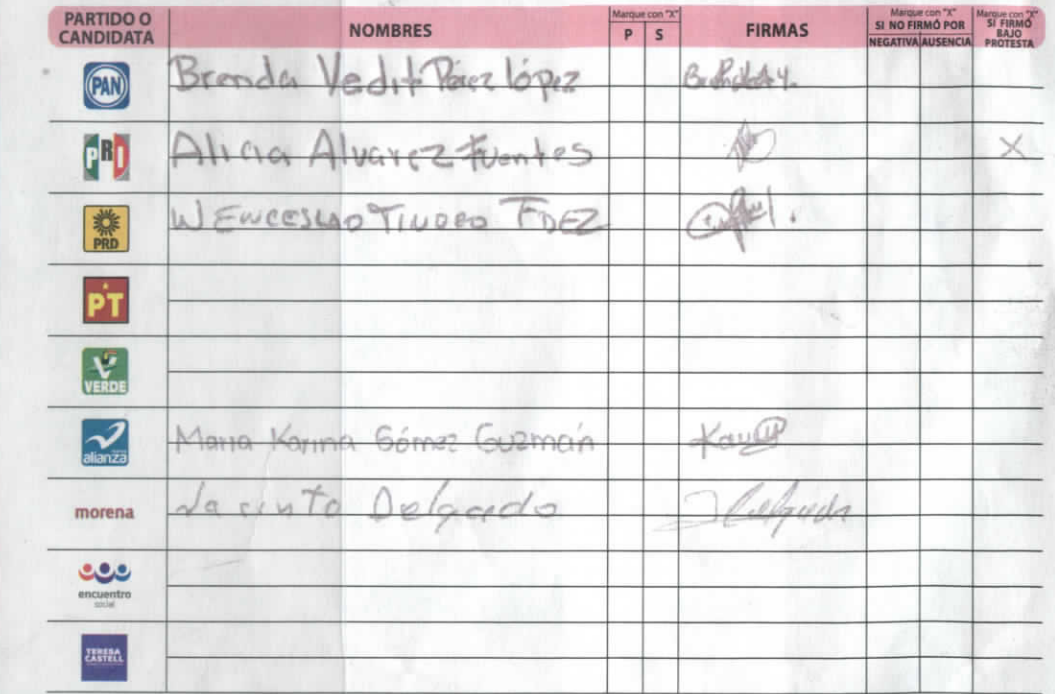 PARTIDO O CANDIDATA NOMBRES Marque con "X" P S FIRMAS Marque con "X" SI NO FIRMÓ POR NEGATIVA AUSENCIA Marque con "X" SI FIRMÓ BAJO PROTESTA
PAN Brenda Vedit Pérez lópez
PRI Alicia Alvarez Fuentes X
PRD WENCESLAO TINOCO FDEZ
PT
VERDE
alianza Maria Karina Gómez Guzmán
morena Jacinto Delgado J Delgado
encuentro social
TERESA CASTELL